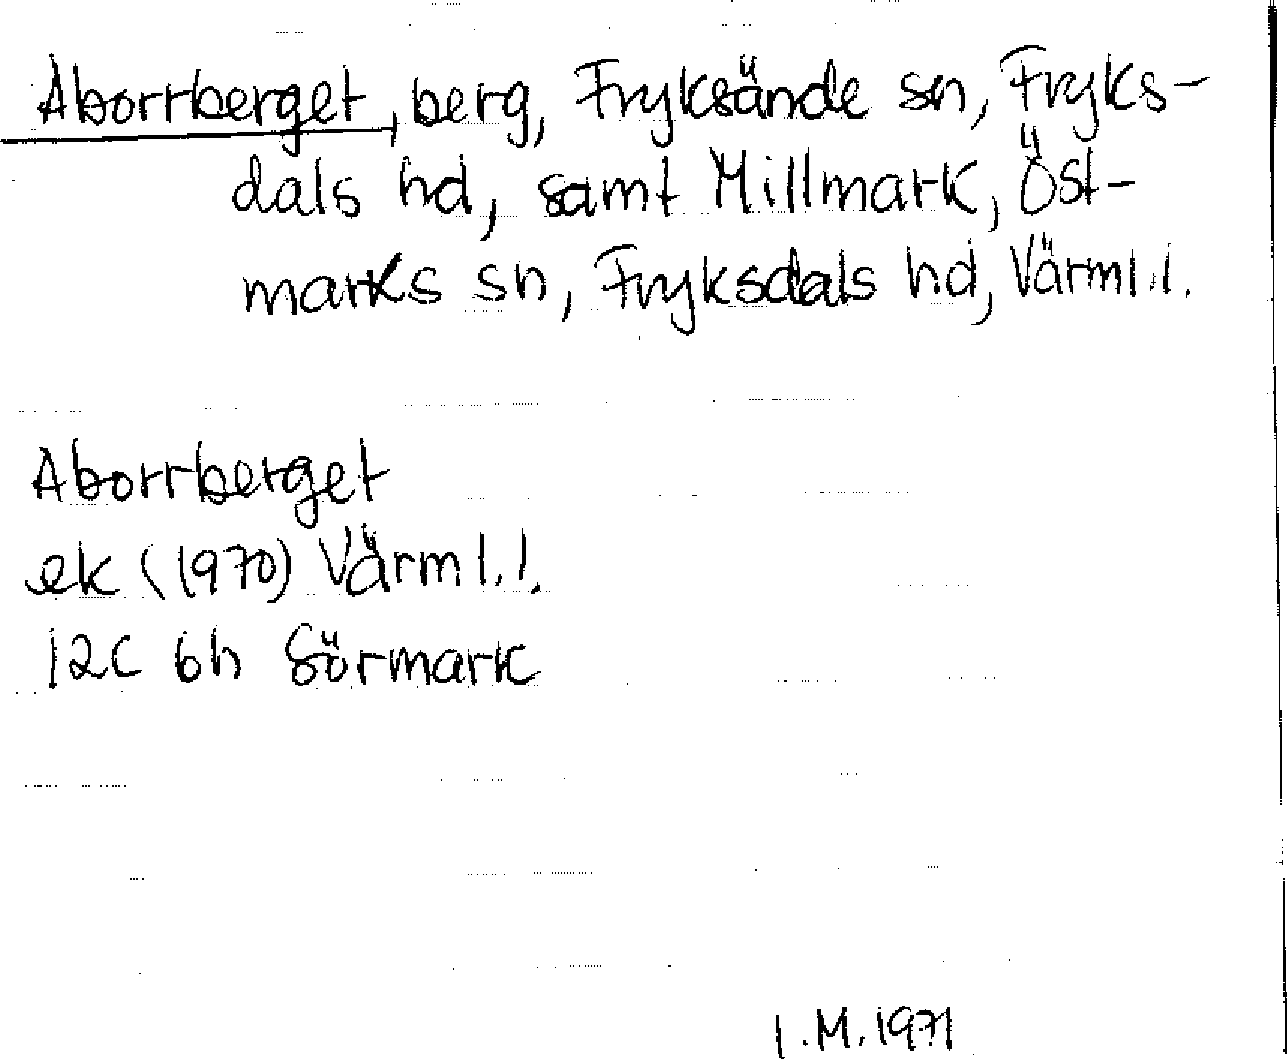 Aborrberget, berg, Fryksände sn, Fryks-
dals hd, samt Millmark, Öst-
marks sn, Fryksdals hd, Värml.l.
Aborrberget
ek (1970) Värml.l.
12C 6h Sörmark
I.M. 1971